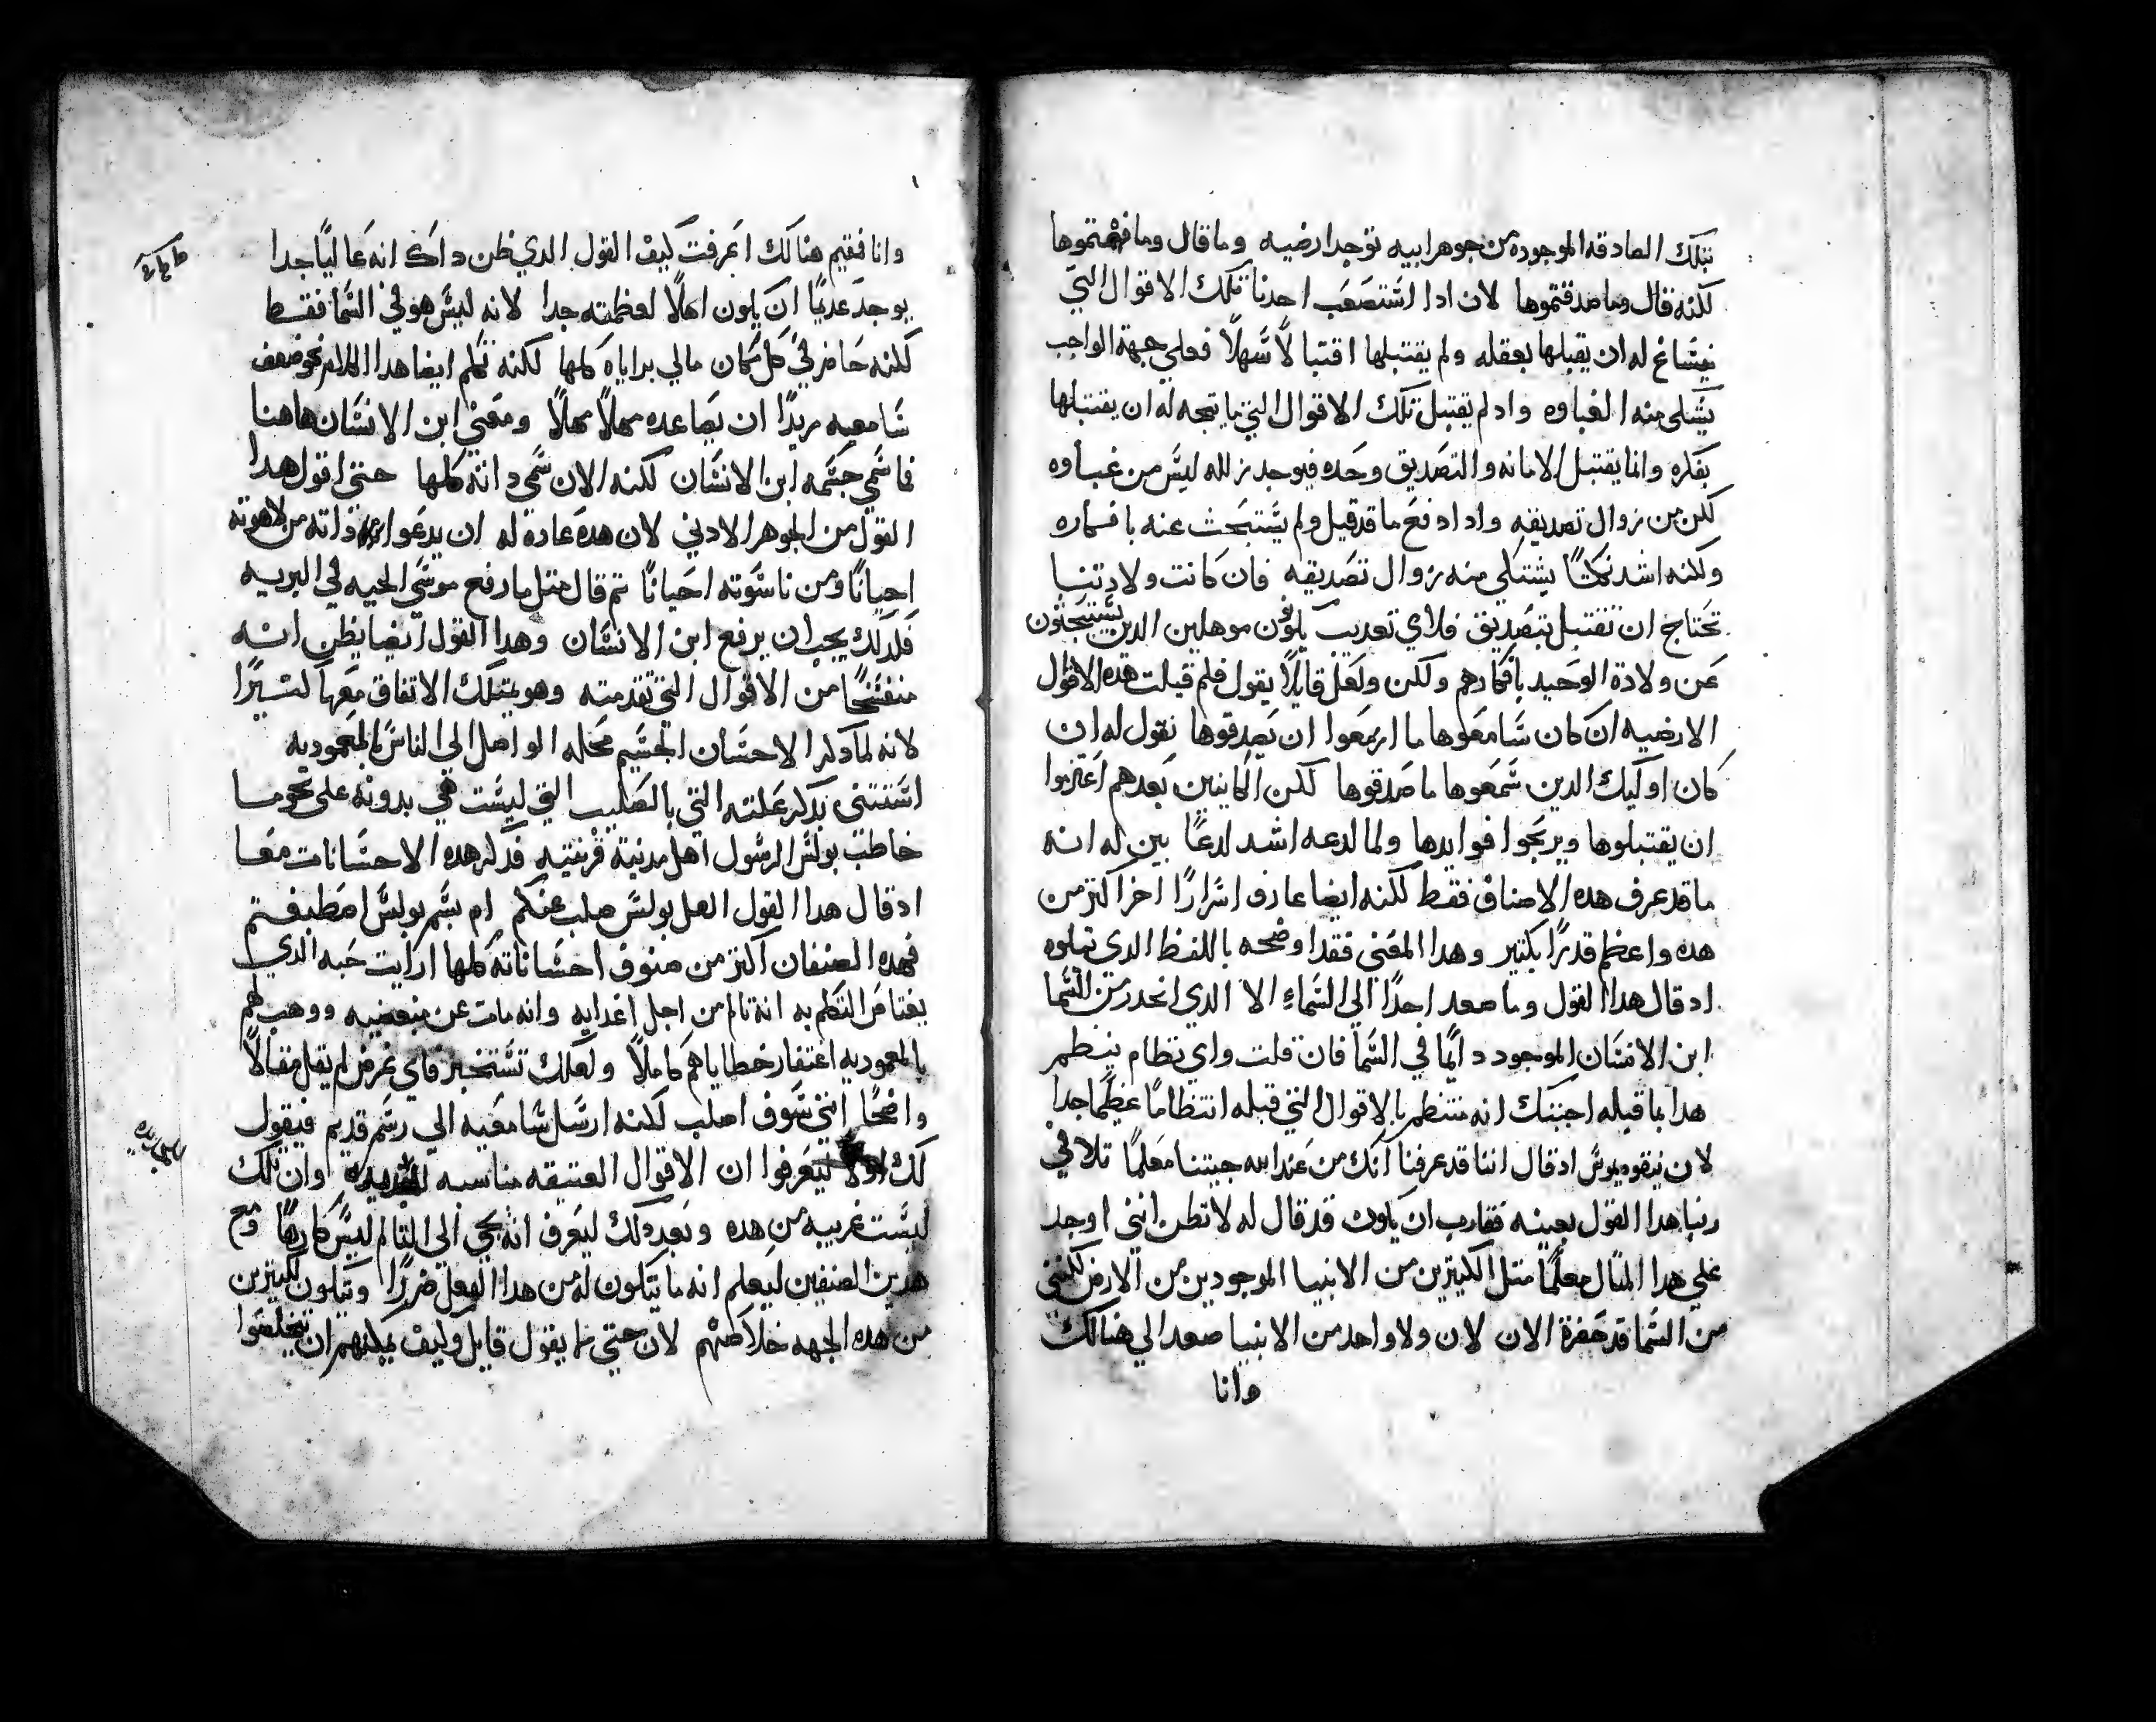 بتلك الصادقه الموجوده من جوهر ابيه توجد ارضيه وما قال وما فهمتموها
لكنه قال وما صدقتموها لان ادا اشتصعب احدنا تلك الاقوال التي
ينشاغ له ان يقبلها بعقله ولم يقتبلها اقتبالًا شهلًا فعلي جهة الواجب
يشكى منه الغباوه واد لم يقتبل تلك الاقوال التي ما يتجه له ان يقتبلها
بفكره وانما يقتبل الامانه والتصديق وحده فيوجد زلله ليش من غباوه
لكن من زوال تصديقه واد ادفع ما قد قيل ولم يشتبحث عنه بافكاره
ولكنه اشد نكتًا يشتكى منه زوال تصديقه فان كانت ولادتنا
تحتاج ان تقتبل بتصديق فلاي تعديب يكون موهلين الدين يشتبحثون
عن ولادة الوحيد بافكارهم ولكن ولعل قايلًا يقول فلم قيلت هده الاقوال
الارضيه ان كان شامعوها ما ازمعوا ان يصدقوها نقول له ان
كان اوليك الدين شمعوها ما صدقوها لكن الكاينين بعدهم اعتزموا
ان يقتبلوها ويربحوا فوايدها ولما لدعه اشد لدعًا بين له انه
ما قد عرف هده الاصناف فقط لكنه ايضا عارف اشرارًا اخر اكتر من
هده واعظم قدرًا بكتير وهدا المعني فقد اوضحه باللفظ الدي تيلوه
اد قال هدا القول وما صعد احدًا الي الشماء الا الدي انحدر من الشما
ابن الانشان الموجود دايمًا في الشما فان قلت واي نظام ينتظم
هدا بما قبله اجبتك انه منتظم بالاقوال التي قبله انتظامًا عظيمًا جدا
لان نيقوديموش اد قال اننا قد عرفنا انك من عند الله جيتنا معلمًا تلافي
ربنا هدا القول بعينه فقارب ان يكون قد قال له لا تظن انني اوجد
علي هدا المتال معلمًا متل الكتيرين من الانبيا الموجودين من الارض لكنني
من الشما قد حضرة الان لان ولا واحد من الانبيا صعد الي هنالك
وانا
وانا فقيم هنالك اعرفت كيف القول الدي ظن داك انه عاليًا جدا
يوجد عديمًا ان يكون اهلًا لعظمته جدا لانه ليش هو في الشما فقط
لكنه حاضر في كل مكان مالي براياه كلها لكنه تكلم ايضا هدا الكلام نحو ضعف
شامعيه مريدًا ان يصاعده مهلًا مهلًا ومعني ابن الانشان هاهنا
فما شمي جشمه ابن الانشان لكنه الان شمي داته كلها حتي اقول هدا
القول من الجوهر الادني لان هده عاده له ان يدعوا داته من لاهوته
احيانًا ومن ناشوته احيانًا تم قال متل ما رفع موشي الحيه في البريه
فلدلك يجب ان يرفع ابن الانشان وهدا القول ايضا يظن انه
منفشخًا من الاقوال التي تقدمته وهو يمتلك الاتفاق معها كتيرًا
لانه لما دكر الاحشان الجشيم محله الواصل الي الناش بالمعموديه
اشتتنى بدكر علته التي بالصليب التي ليشت هي بدونه على نحو ما
خاطب بولش الرشول اهل مدينة قرنتيه فدكر هده الاحشانات معا
اد قال هدا القول العل بولش صلب عنكم ام بشم بولش اصطبغتم
فهده الصنفان اكتر من صنوف احشاناته كلها ارايت حبه الدي
يفتاق التكلم به انه تالم من اجل اعدايه وانه مات عن مبغضيه ووهب لهم
بالمعموديه اغتفار خطاياهم كاملًا ولعلك تشتخبر فاي غرض لم يقل مقالًا
واضحًا انني شوف اصلب لكنه ارشل شامعيه الي رشم قديم فيقول
لك اولا ليعرفوا ان الاقوال العتيقه مناسبه للجديده وان تلك
ليشت غريبه من هده وبعد دلك ليعرف انه يجي الي التالم ليش كارهًا ومع
هدين الصنفين ليعلم انه ما يتكون له من هدا الفعل ضررًا وتكون لكتيرين
من هده الجهه خلاصهم لان حتي ما يقول قايل وكيف يمكنهم ان يتخلصوا